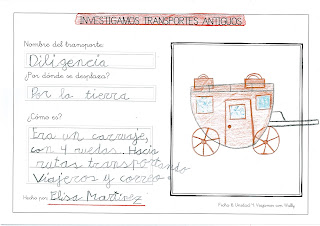 INVESTIGAMOS TRANSPORTES ANTIGUOS
Nombre del transporte:
Diligencia
¿Por dónde se desplaza?
Por la tierra
¿Cómo es?
Era un carruaje,
con 4 ruedas. Hacía
rutas transportando
Viajeros y correo.
Hecho por: Elsa Martínez
Ficha 8 Unidad 9 Viajamos con Molly